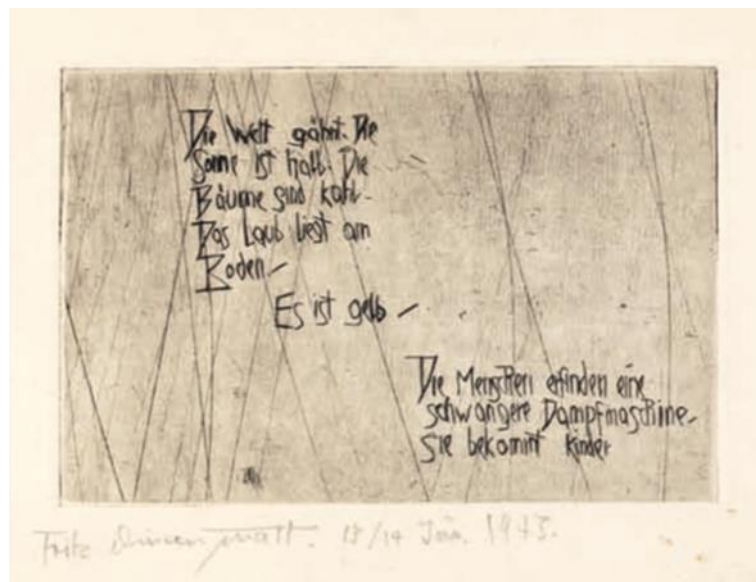 Die Welt gähnt. Die
Sonne ist halb. Die
Bäume sind kahl-
Das Laub liegt am
Boden-
Es ist gelb -
Die Menschen erfinden eine
schwangere Dampfmaschine-
sie bekommt Kinder
Fritz Dürrenmatt. Jän. 1943.